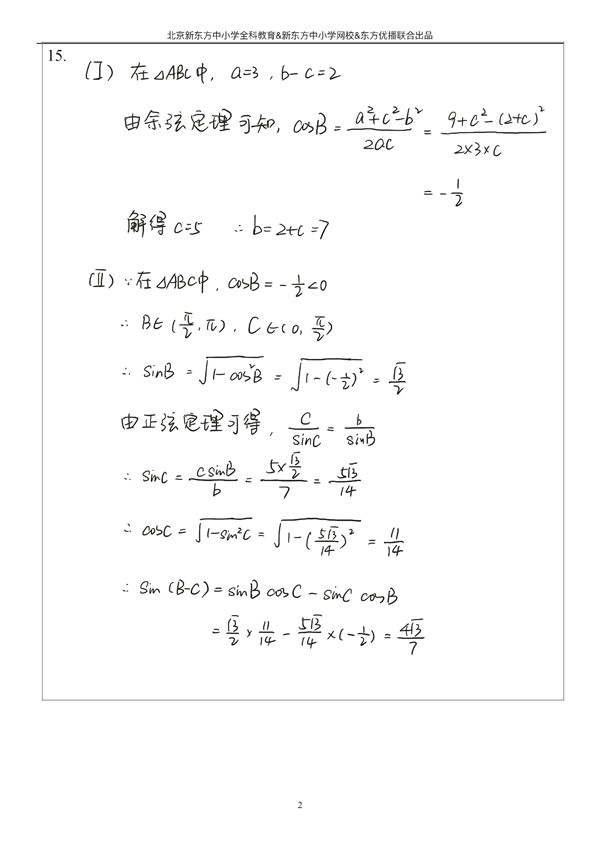 北京新东方中小学全科教育&新东方中小学网校&东方优播联合出品
15.
(Ⅰ) 在△ABC中, a=3, b-c=2
由余弦定理可知, cosB = (a²+c²-b²)/(2ac) = (9+c²-(2+c)²)/(2×3×c)
= -1/2
解得 c=5 ∴ b=2+c=7
(Ⅱ) ∵在△ABC中, cosB = -1/2 <0
∴ B∈(π/2, π), C∈(0, π/2)
∴ sinB = √(1-cos²B) = √(1-(-1/2)²) = √3/2
由正弦定理可得, C/sinC = b/sinB
∴ sinC = csinB/b = (5×√3/2)/7 = 5√3/14
∴ cosC = √(1-sin²C) = √(1-(5√3/14)²) = 11/14
∴ Sin (B-C) = sinB cosC - sinC cosB
= √3/2 × 11/14 - 5√3/14 × (-1/2) = 4√3/7
2